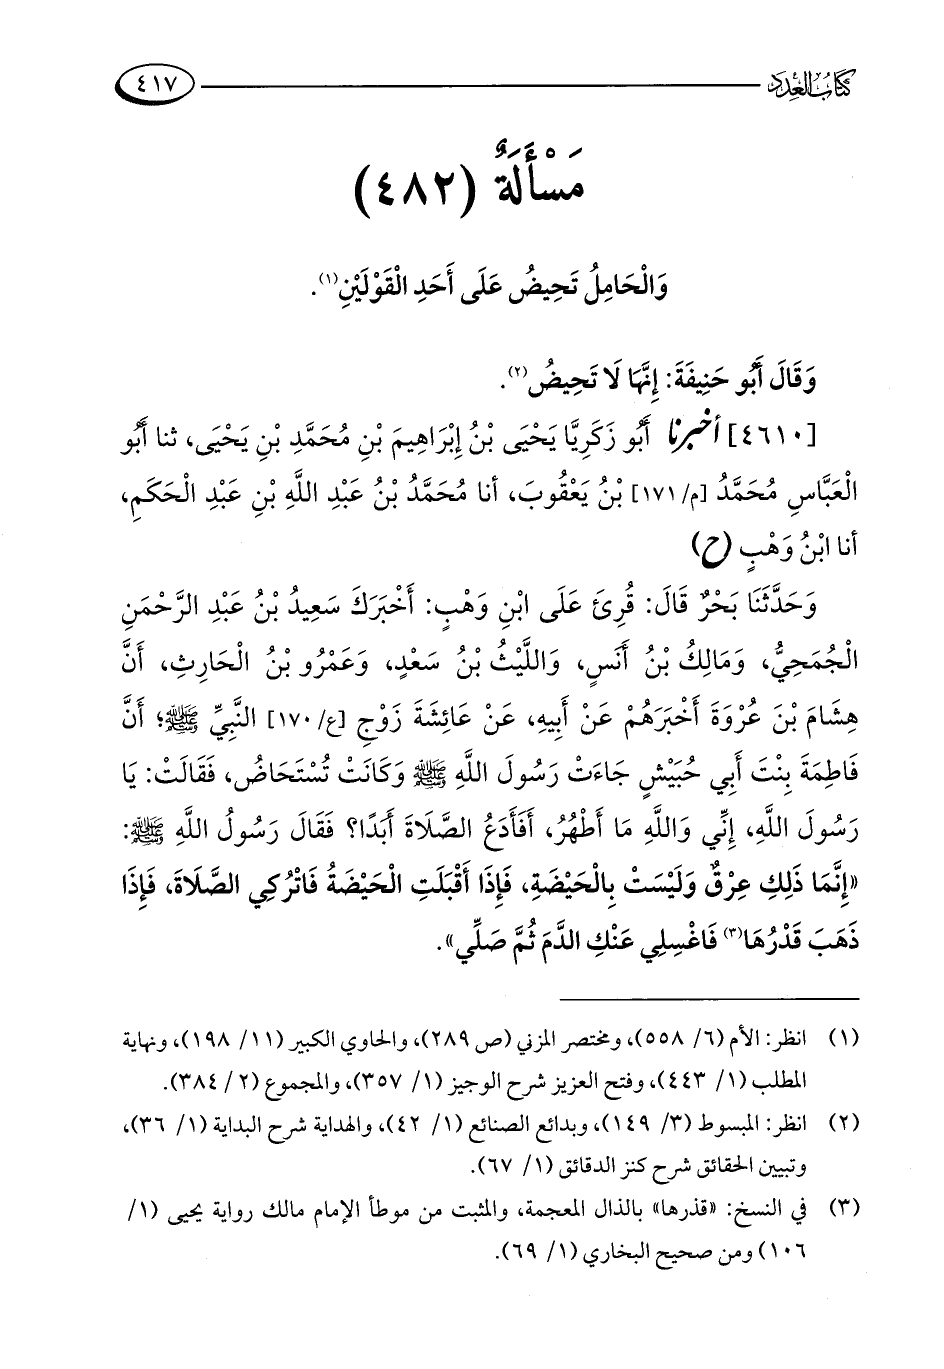 كتاب العدد
٤١٧
مَسْأَلَةٌ (٤٨٢)
وَالْحَامِلُ تَحِيضُ عَلَى أَحَدِ الْقَوْلَيْنِ(١).
وَقَالَ أَبُو حَنِيفَةَ: إِنَّهَا لَا تَحِيضُ(٢).
[٤٦١٠] أخبرنا أَبُو زَكَرِيَّا يَحْيَى بْنُ إِبْرَاهِيمَ بْنِ مُحَمَّدِ بْنِ يَحْيَى، ثنا أَبُو
الْعَبَّاسِ مُحَمَّدُ [م/ ١٧١] بْنُ يَعْقُوبَ، أنا مُحَمَّدُ بْنُ عَبْدِ اللَّهِ بْنِ عَبْدِ الْحَكَمِ،
أنا ابْنُ وَهْبٍ (ح)
وَحَدَّثَنَا بَحْرٌ قَالَ: قُرِئَ عَلَى ابْنِ وَهْبٍ: أَخْبَرَكَ سَعِيدُ بْنُ عَبْدِ الرَّحْمَنِ
الْجُمَحِيُّ، وَمَالِكُ بْنُ أَنَسٍ، وَاللَّيْثُ بْنُ سَعْدٍ، وَعَمْرُو بْنُ الْحَارِثِ، أَنَّ
هِشَامَ بْنَ عُرْوَةَ أَخْبَرَهُمْ عَنْ أَبِيهِ، عَنْ عَائِشَةَ زَوْجِ [ع/ ١٧٠] النَّبِيِّ ﷺ؛ أَنَّ
فَاطِمَةَ بِنْتَ أَبِي حُبَيْشٍ جَاءَتْ رَسُولَ اللَّهِ ﷺ وَكَانَتْ تُسْتَحَاضُ، فَقَالَتْ: يَا
رَسُولَ اللَّهِ، إِنِّي وَاللَّهِ مَا أَطْهُرُ، أَفَأَدَعُ الصَّلَاةَ أَبَدًا؟ فَقَالَ رَسُولُ اللَّهِ ﷺ:
«إِنَّمَا ذَلِكِ عِرْقٌ وَلَيْسَتْ بِالْحَيْضَةِ، فَإِذَا أَقْبَلَتِ الْحَيْضَةُ فَاتْرُكِي الصَّلَاةَ، فَإِذَا
ذَهَبَ قَدْرُهَا(٣) فَاغْسِلِي عَنْكِ الدَّمَ ثُمَّ صَلِّي».
(١) انظر: الأم (٦/ ٥٥٨)، ومختصر المزني (ص ٢٨٩)، والحاوي الكبير (١١/ ١٩٨)، ونهاية
المطلب (١/ ٤٤٣)، وفتح العزيز شرح الوجيز (١/ ٣٥٧)، والمجموع (٢/ ٣٨٤).
(٢) انظر: المبسوط (٣/ ١٤٩)، وبدائع الصنائع (١/ ٤٢)، والهداية شرح البداية (١/ ٣٦)،
وتبيين الحقائق شرح كنز الدقائق (١/ ٦٧).
(٣) في النسخ: «قذرها» بالذال المعجمة، والمثبت من موطأ الإمام مالك رواية يحيى (١/
١٠٦) ومن صحيح البخاري (١/ ٦٩).